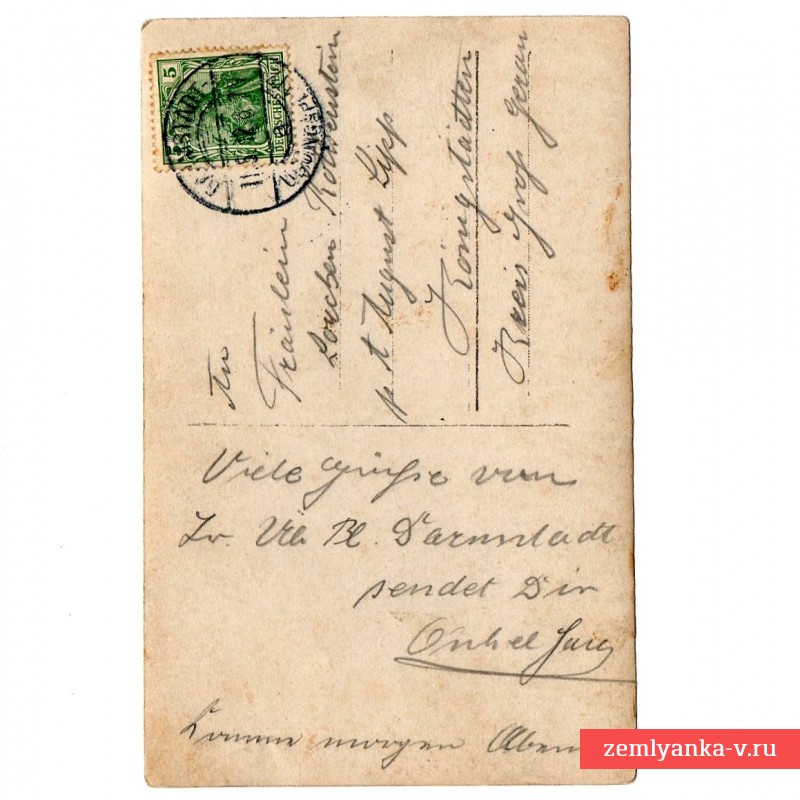 5
DEUTSCHES REICH
An
Fräulein
Lorchen Rothenstein
p. A August Lipp
Königstädten
Kreis Groß Gerau
Viele Grüße vom
Tr. Üb Pl. Darmstadt
sendet Dir
Onkel
Komme morgen
zemlyanka-v.ru